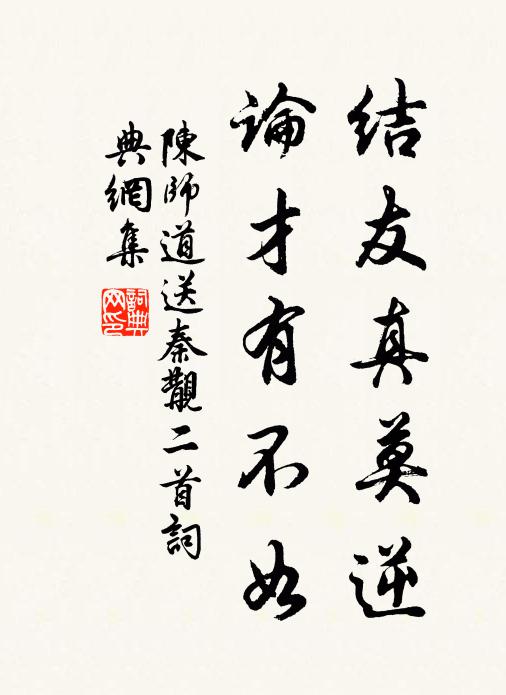 結友真莫逆
論才有不如
陳師道送秦觀二首詞
典網集
詞典網印